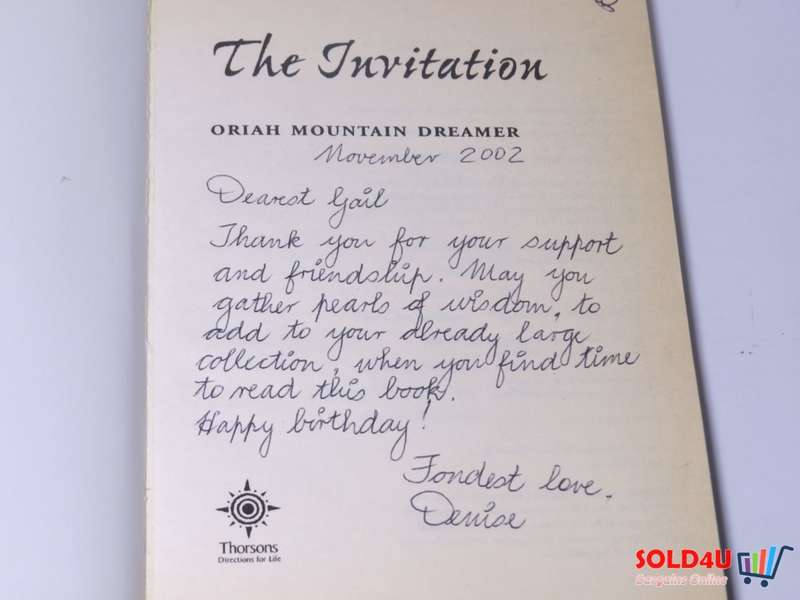 The Invitation
ORIAH MOUNTAIN DREAMER
November 2002
Dearest Gail
Thank you for your support
and friendship. May you
gather pearls of wisdom, to
add to your already large
collection, when you find time
to read this book.
Happy birthday!
Fondest love,
Denise
Thorsons
Directions for Life
SOLD4U
Bargains Online